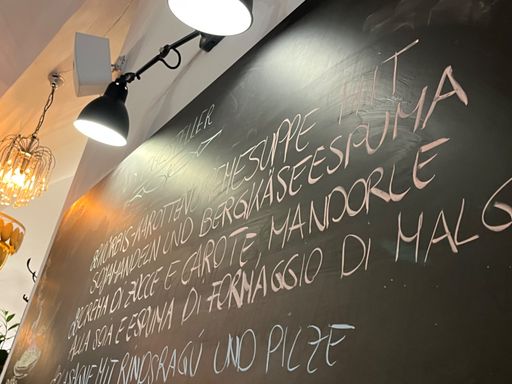 KÜRBIS-KAROTTENCREMESUPPE MIT
SOJAMANDELN UND BERGKÄSEESPUMA
CREMA DI ZUCCE E CAROTE, MANDORLE
ALLA SOIA E ESPUMA DI FORMAGGIO DI MALG
LASAGNE MIT RINDSRAGÚ UND PILZE